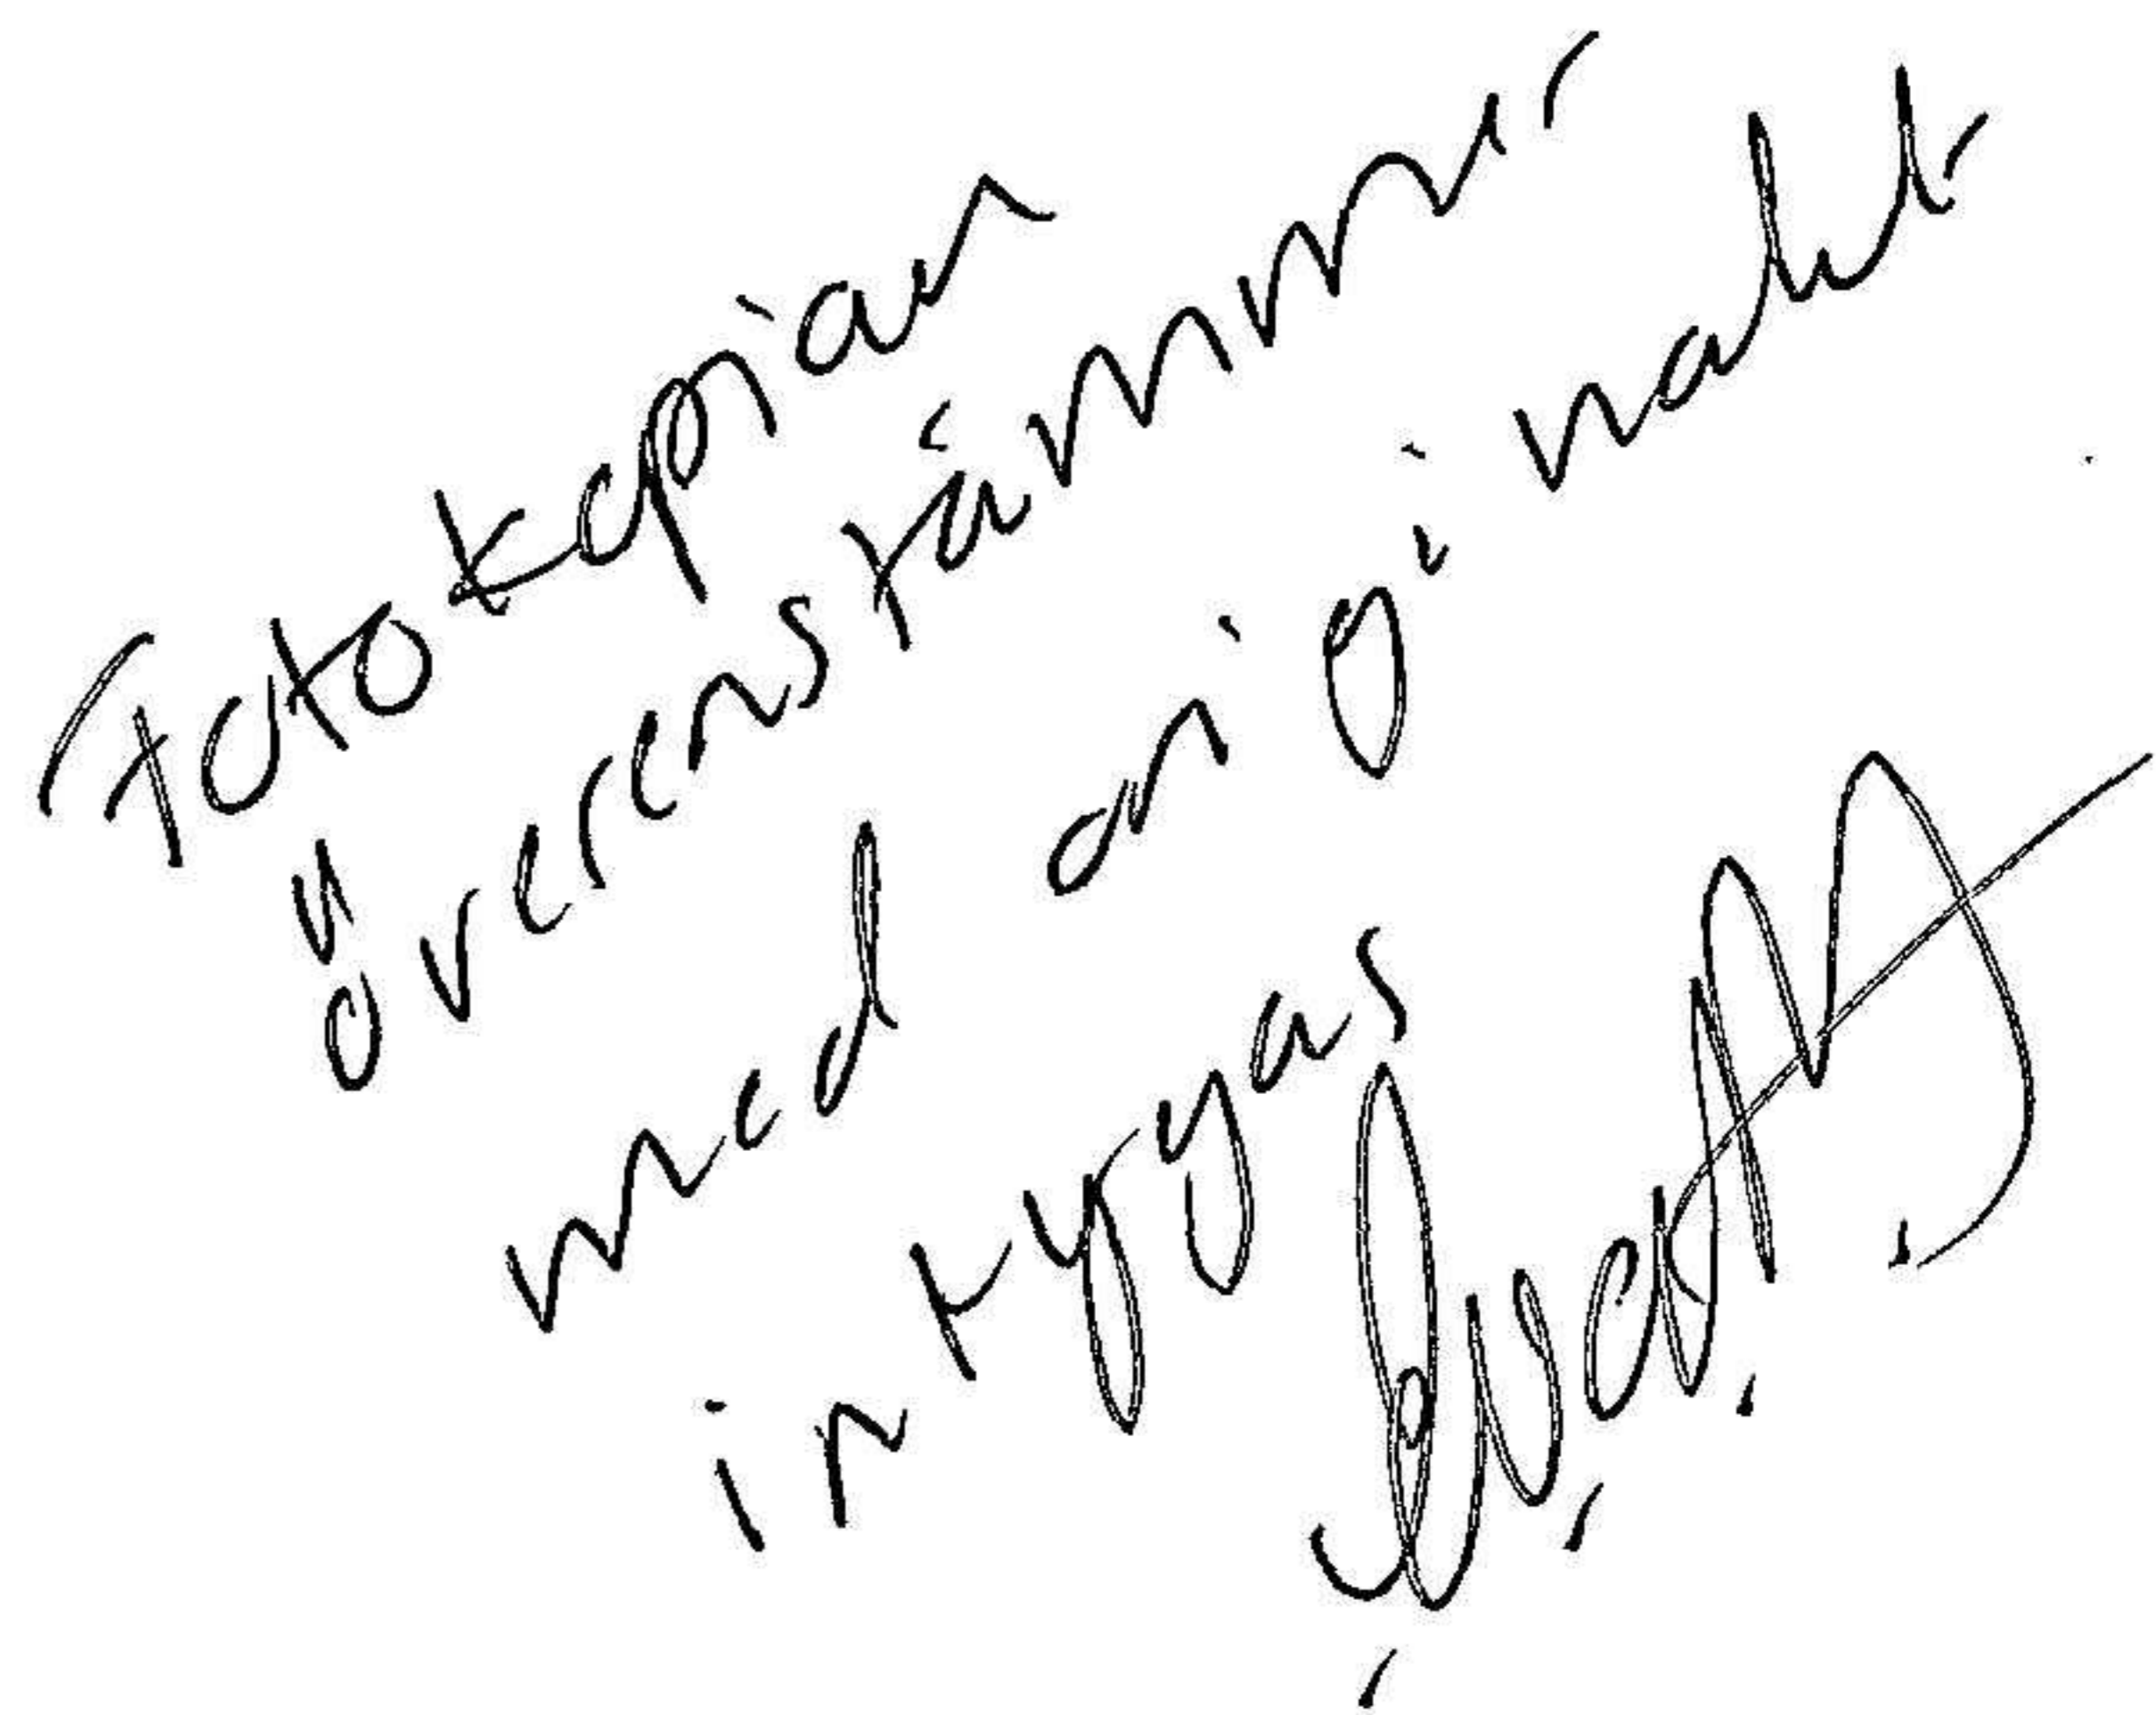 Fotokopians
överensstämmer
med originalet
intygas